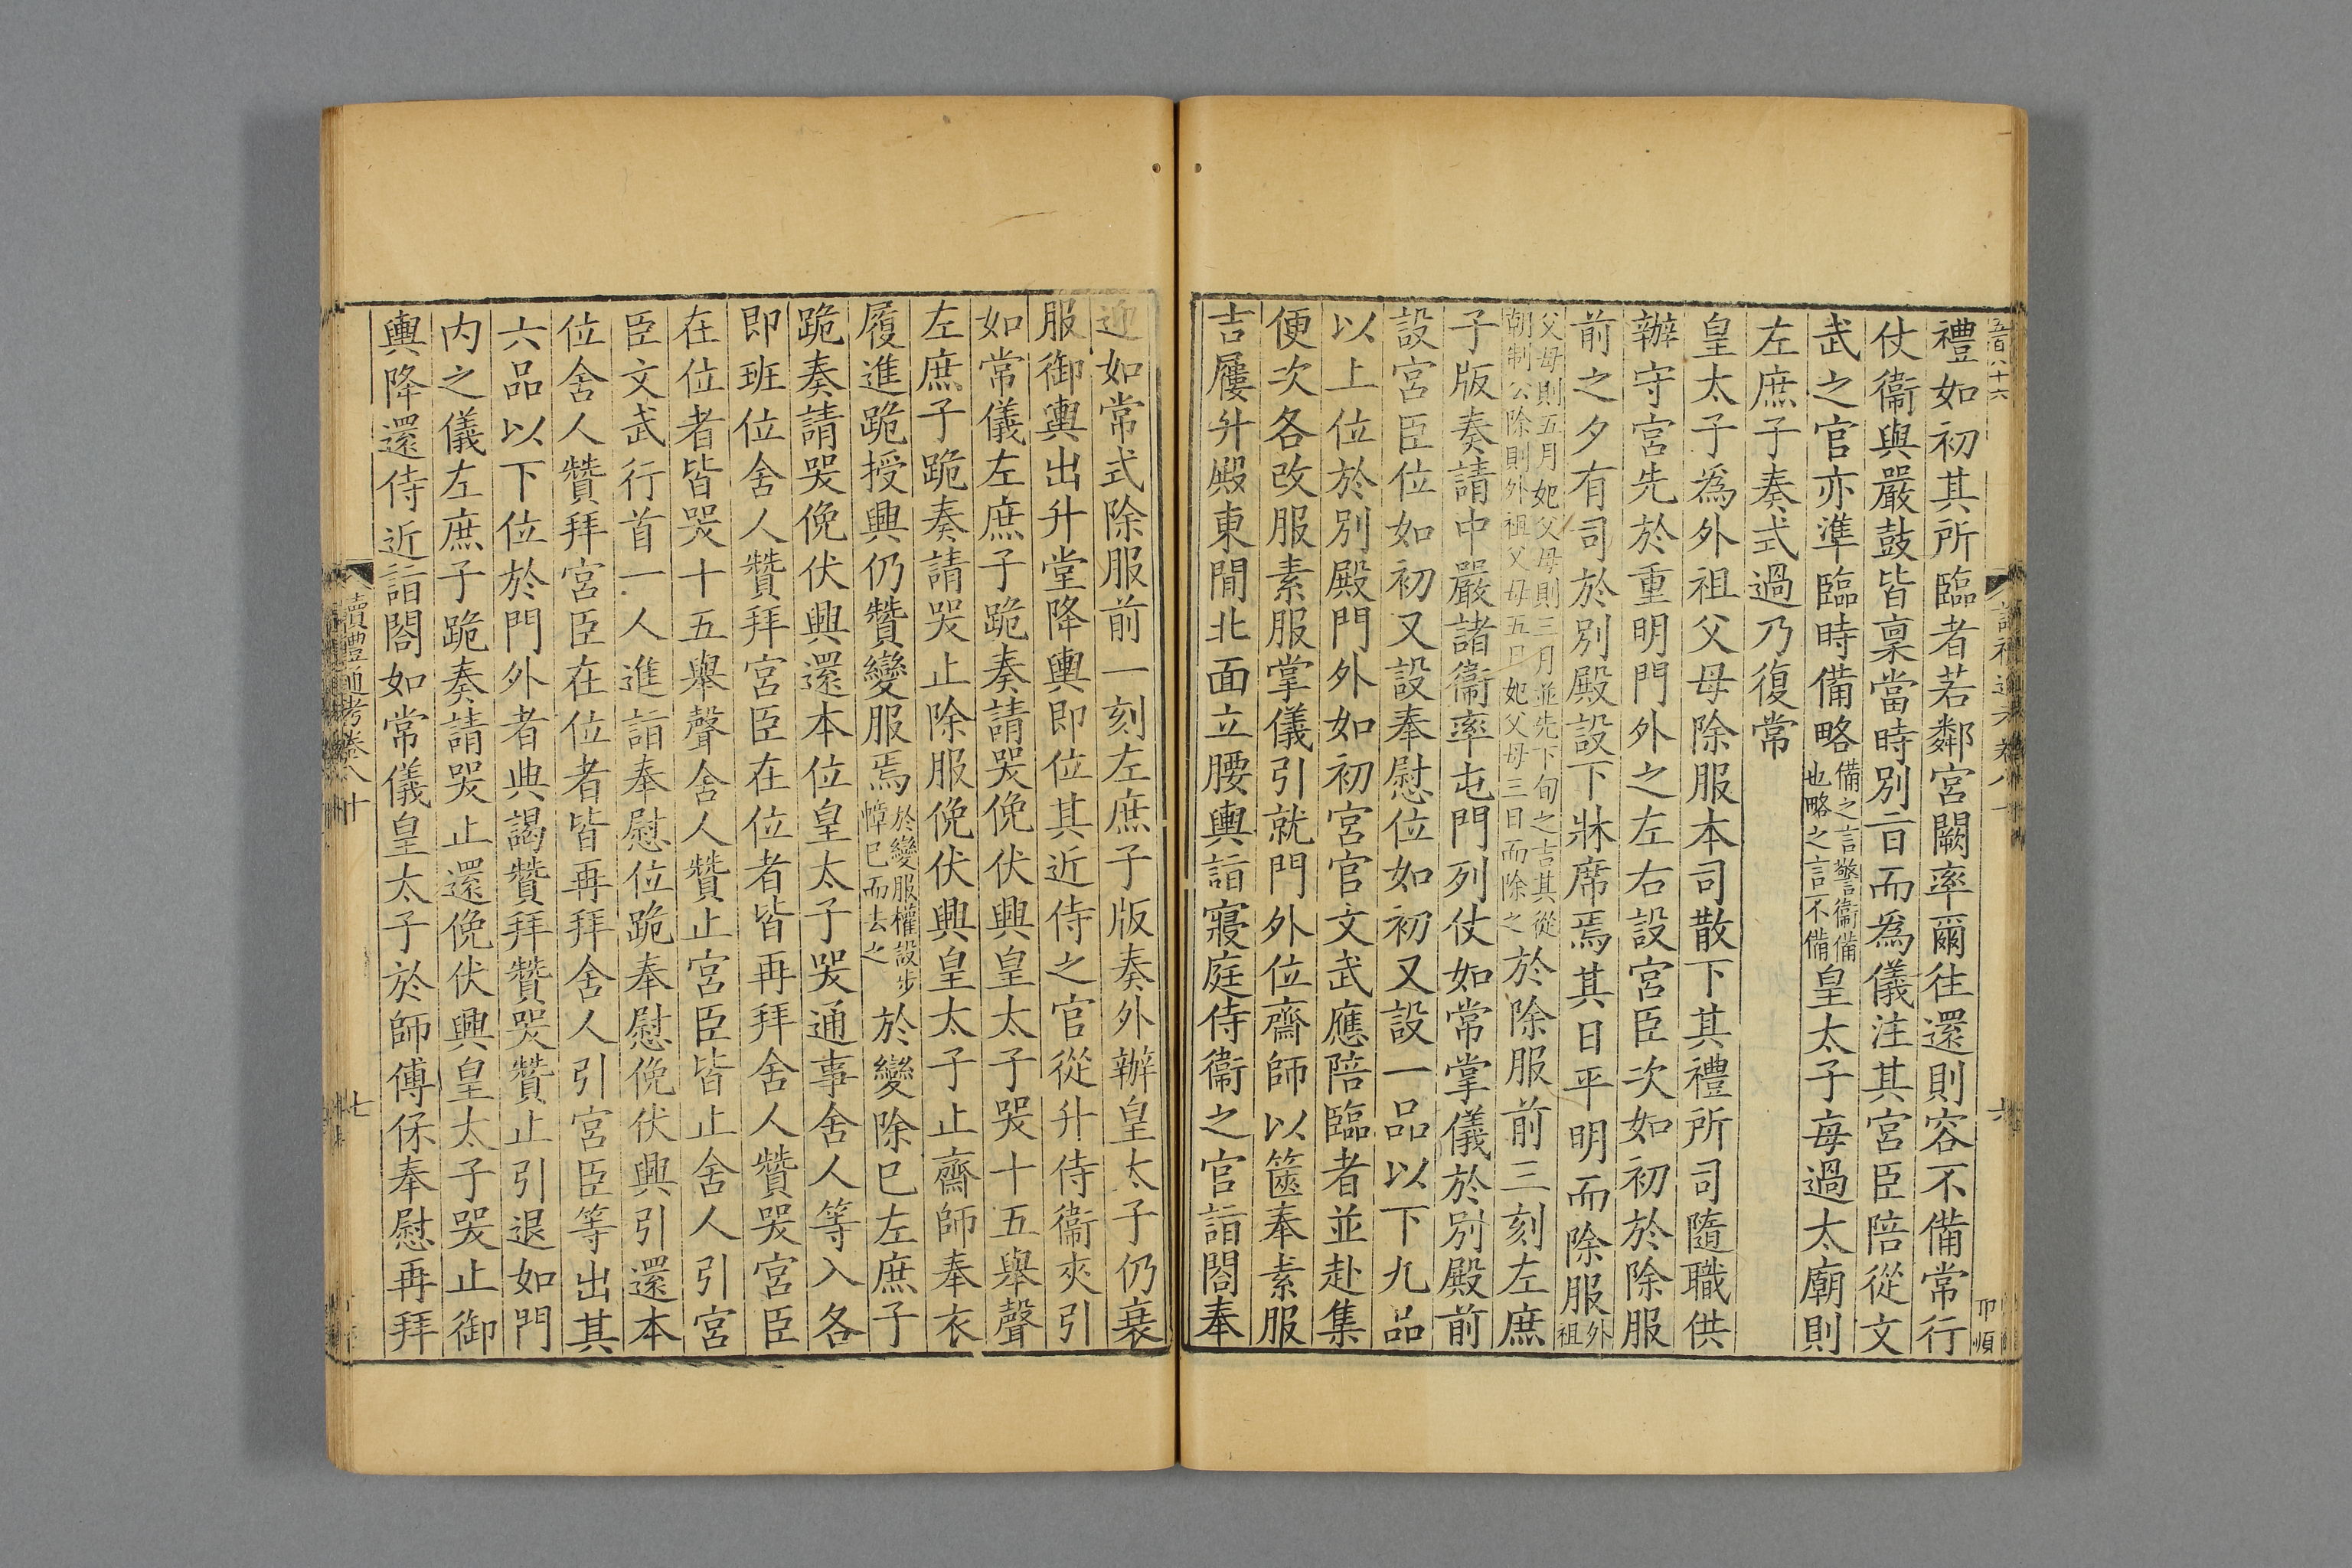 五百八十六
讀禮通考卷八十
六
禮如初其所臨者若鄰宮闕率爾往還則容不備常行
仗衞與嚴鼓皆稟當時別旨而爲儀注其宮臣陪從文
武之官亦準臨時備略備之言警衞備也略之言不備皇太子每過太廟則
左庶子奏式過乃復常
皇太子爲外祖父母除服本司散下其禮所司隨職供
辦守宮先於重明門外之左右設宮臣次如初於除服
前之夕有司於別殿設下牀席焉其日平明而除服外祖
父母則五月妃父母則三月並先下旬之吉其從朝制公除則外祖父母五日妃父母三日而除之於除服前三刻左庶
子版奏請中嚴諸衞率屯門列仗如常掌儀於別殿前
設宮臣位如初又設奉慰位如初又設一品以下九品
以上位於別殿門外如初宮官文武應陪臨者並赴集
便次各改服素服掌儀引就門外位齋師以篋奉素服
吉屨升殿東間北面立腰輿詣寢庭侍衞之官詣閤奉
迎如常式除服前一刻左庶子版奏外辦皇太子仍衰
服御輿出升堂降輿即位其近侍之官從升侍衞夾引
如常儀左庶子跪奏請哭俛伏興皇太子哭十五舉聲
左庶子跪奏請哭止除服俛伏興皇太子止齋師奉衣
履進跪授興仍贊變服焉於變服權設步幛已而去之於變除已左庶子
跪奏請哭俛伏興還本位皇太子哭通事舍人等入各
即班位舍人贊拜宮臣在位者皆再拜舍人贊哭宮臣
在位者皆哭十五舉聲舍人贊止宮臣皆止舍人引宮
臣文武行首一人進詣奉慰位跪奉慰俛伏興引還本
位舍人贊拜宮臣在位者皆再拜舍人引宮臣等出其
六品以下位於門外者典謁贊拜贊哭贊止引退如門
內之儀左庶子跪奏請哭止還俛伏興皇太子哭止御
輿降還侍近詣閤如常儀皇太子於師傅保奉慰再拜
讀禮通考卷八十
七